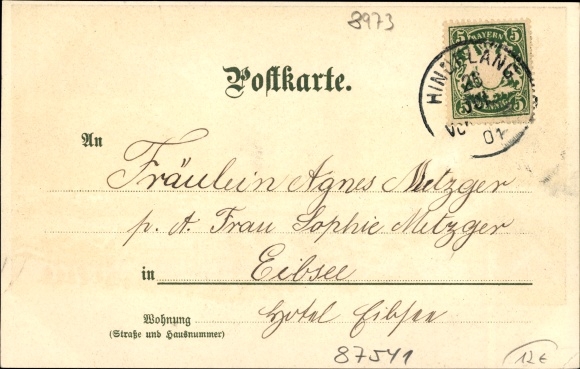 8973
5 BAYERN 5
5 PFENNIG 5
HINDELANG
26
JUL
VOR
01
Postkarte.
An
Fräulein Agnes Metzger
p. A. Frau Sophie Metzger
in Eibsee
Wohnung
(Straße und Hausnummer)
Hotel Eibsee
87541
12€